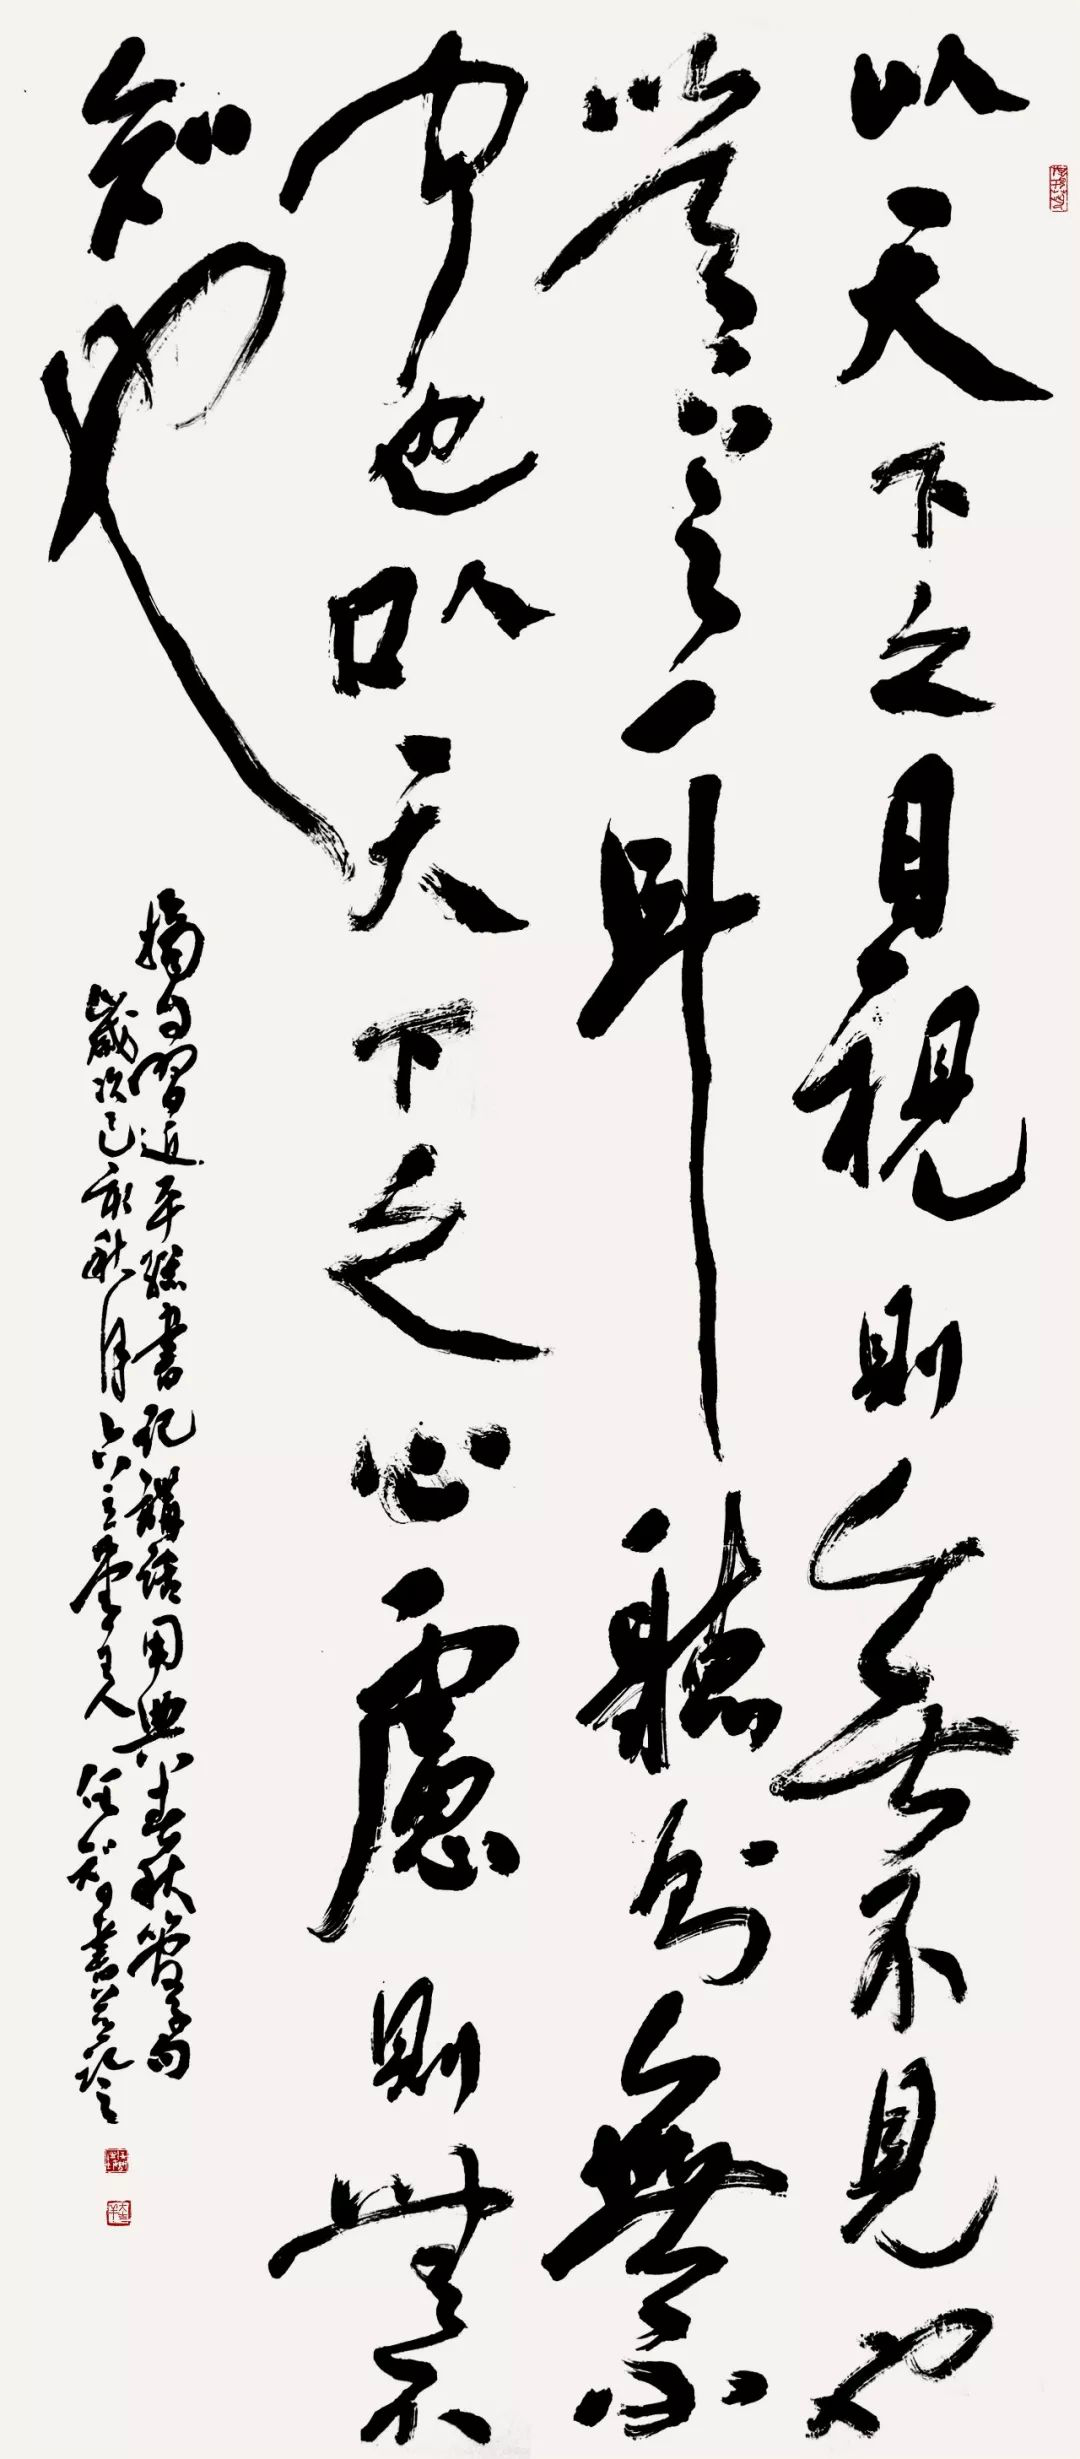 以天下之目視則無不見也
以天下之耳聽則無不
聞也以天下之心慮則無不
知也
摘自習近平總書記講話用典春秋管子句
歲次己亥秋月六堂主人任書